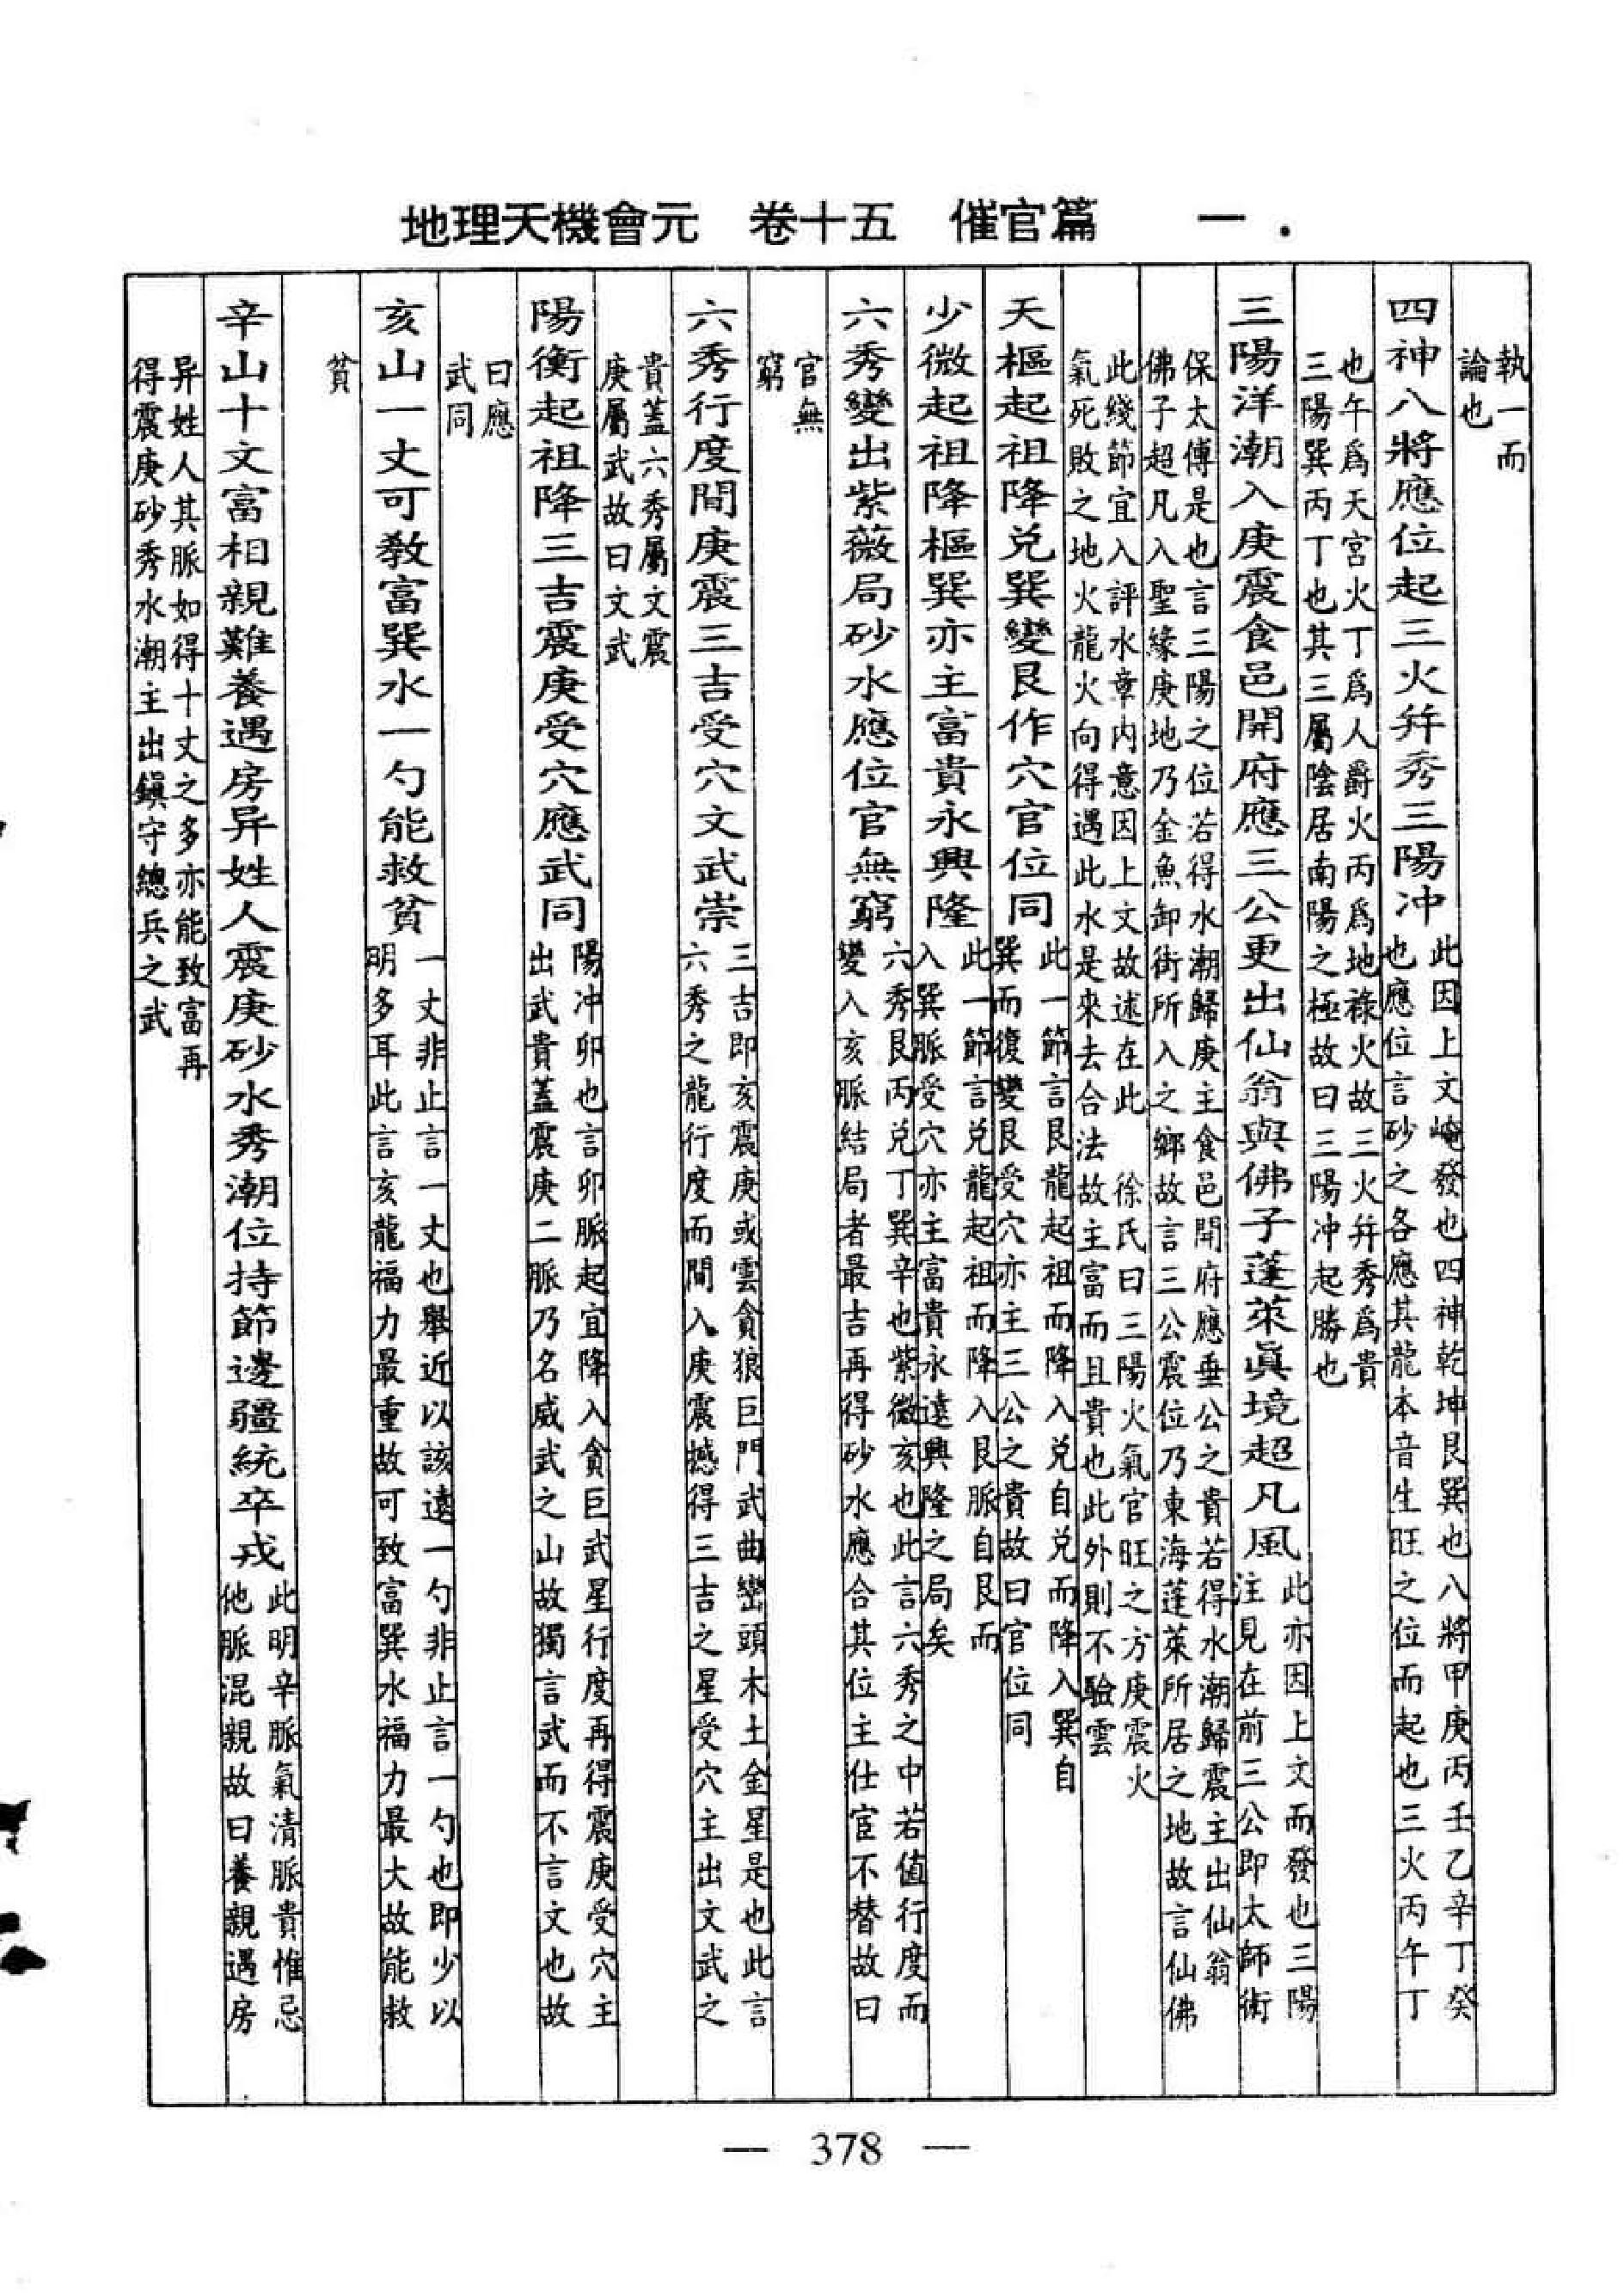 地理天機會元　卷十五　催官篇　一．
執一而
論也
四神八將應位起三火幷秀三陽冲
此因上文崦發也四神乾坤艮巽也八將甲庚丙壬乙辛丁癸
也應位言砂之各應其龍本音生旺之位而起也三火丙午丁
也午爲天宮火丁爲人爵火丙爲地祿火故三火幷秀爲貴
三陽巽丙丁也其三屬陰居南陽之極故曰三陽冲起勝也
三陽洋潮入庚震食邑開府應三公更出仙翁與佛子蓬萊眞境超凡風
此亦因上文而發也三陽
注見在前三公即太師術
保太傅是也言三陽之位若得水潮歸庚主食邑開府應垂公之貴若得水潮歸震主出仙翁
佛子超凡入聖緣庚地乃金魚卸街所入之鄉故言三公震位乃東海蓬萊所居之地故言仙佛
此綫節宜入評水章内意因上文故述在此　徐氏曰三陽火氣官旺之方庚震火
氣死敗之地火龍火向得遇此水是來去合法故主富而且貴也此外則不驗雲
天樞起祖降兑巽變艮作穴官位同
此一節言艮龍起祖而降入兑自兑而降入巽自
巽而復變艮受穴亦主三公之貴故曰官位同
少微起祖降樞巽亦主富貴永興隆
此一節言兑龍起祖而降入艮脈自艮而
入巽脈受穴亦主富貴永遠興隆之局矣
六秀變出紫薇局砂水應位官無窮
六秀艮丙兑丁巽辛也紫微亥也此言六秀之中若値行度而
變入亥脈結局者最吉再得砂水應合其位主仕宦不替故曰
官無
窮
六秀行度間庚震三吉受穴文武崇
三吉即亥震庚或雲貪狼巨門武曲巒頭木土金星是也此言
六秀之龍行度而間入庚震撼得三吉之星受穴主出文武之
貴蓋六秀屬文震
庚屬武故曰文武
陽衡起祖降三吉震庚受穴應武同
陽冲卯也言卯脈起宜降入貪巨武星行度再得震庚受穴主
出武貴蓋震庚二脈乃名威武之山故獨言武而不言文也故
曰應
武同
亥山一丈可教富巽水一勺能救貧
一丈非止言一丈也舉近以該遠一勺非止言一勺也即少以
明多耳此言亥龍福力最重故可致富巽水福力最大故能救
貧
辛山十文富相親難養遇房异姓人震庚砂水秀潮位持節邊疆統卒戎
此明辛脈氣清脈貴惟忌
他脈混親故曰養親遇房
异姓人其脈如得十丈之多亦能致富再
得震庚砂秀水潮主出鎭守總兵之武
— 378 —